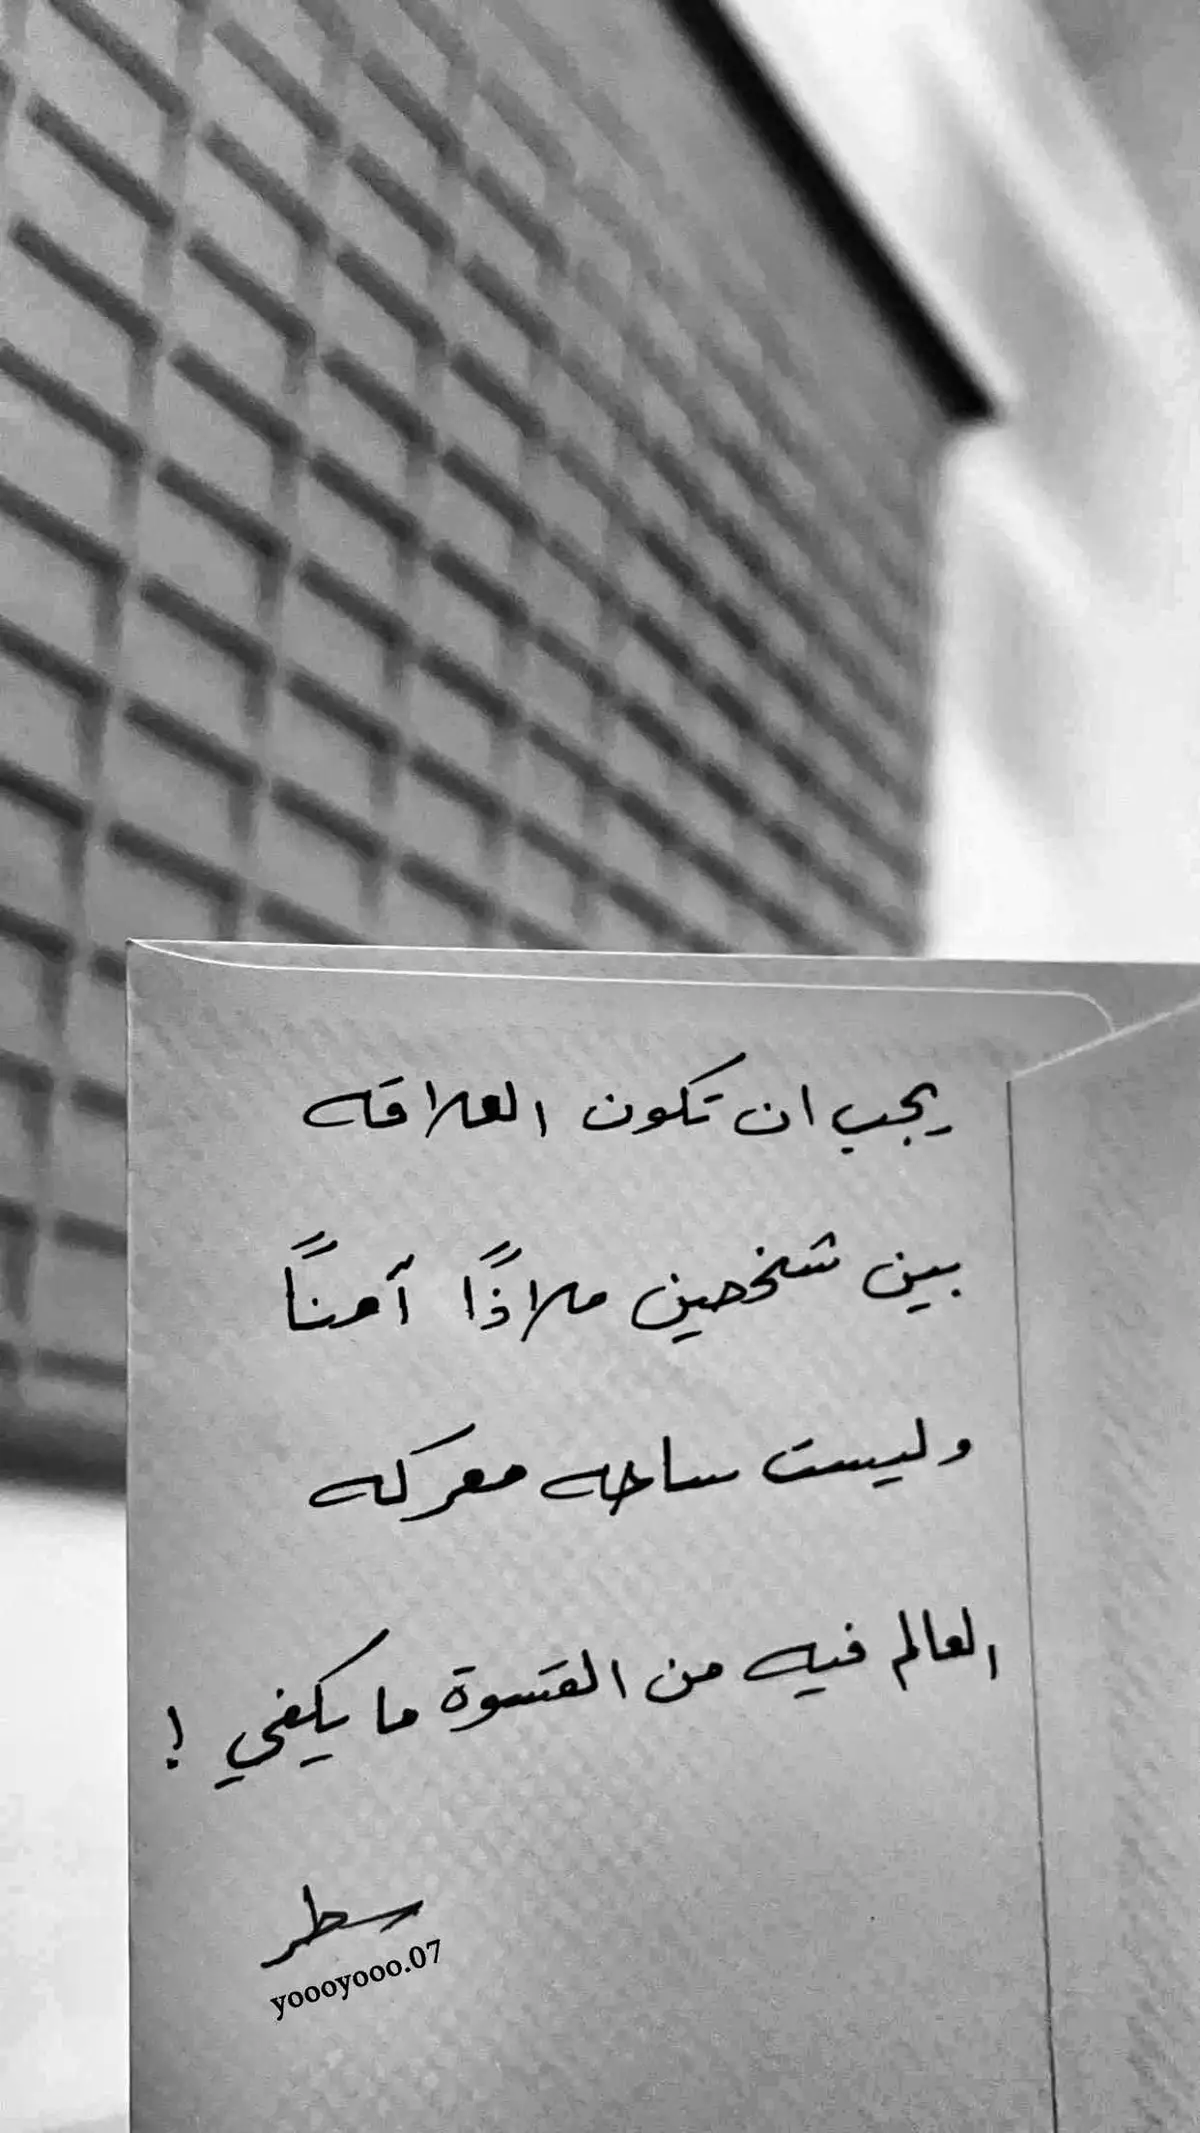 يجب ان تكون العلاقه
بين شخصين ملاذًا آمنـًا
وليست ساحه معركه
العالم فيه من القسوة ما يكفي !
سطر
yoooyooo.07